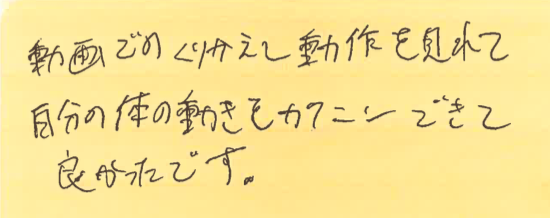 動画でのくりかえし動作を見れて
自分の体の動きもカクニンできて
良かったです。